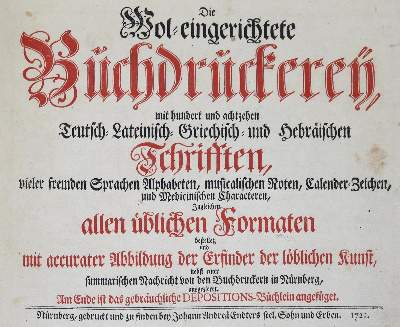 Die
Wol-eingerichtete
Buchdruckerey,
mit hundert und achtzehen
Teutsch- Lateinisch- Griechisch- und Hebräischen
Schrifften,
vieler fremden Sprachen Alphabeten, musicalischen Noten, Calender-Zeichen,
und Medicinischen Characteren,
Ingleichen
allen üblichen Formaten
bestellet,
und
mit accurater Abbildung der Erfinder der löblichen Kunst,
nebst einer
summarischen Nachricht von den Buchdruckern in Nürnberg,
ausgezieret.
Am Ende ist das gebräuchliche DEPOSITIONS-Büchlein angefüget.
Nürnberg, gedruckt und zu finden bey Johann Andreä Endters seel. Sohn und Erben. 1721.